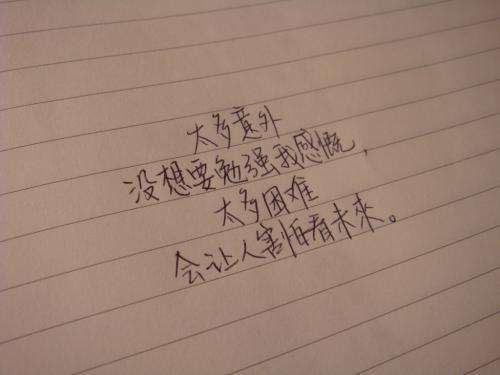 太多意外
没想要勉强我感慨，
太多困难
会让人害怕看未來。